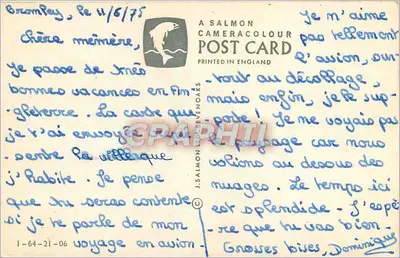 Bromley, le 11/6/75
Chère mémère,
je passe de très
bonnes vacances en An-
gleterre. La carte que
je t'ai envoyée
-sente la ville que
j'habite. Je pense
que tu seras contente
si je te parle de mon
voyage en avion.
1-64-21-06
A SALMON
CAMERACOLOUR
POST CARD
PRINTED IN ENGLAND
© J. SALMON LTD., SEVENOAKS
Je n'aime
pas tellement
l'avion, sur-
tout au décollage,
mais enfin, je le sup-
porte! Je ne voyais pas
le paysage car nous
volions au dessous des
nuages. Le temps ici
est splendide. J'espè-
re que tu vas bien.
Grosses bises, Dominique
CPAPHIL